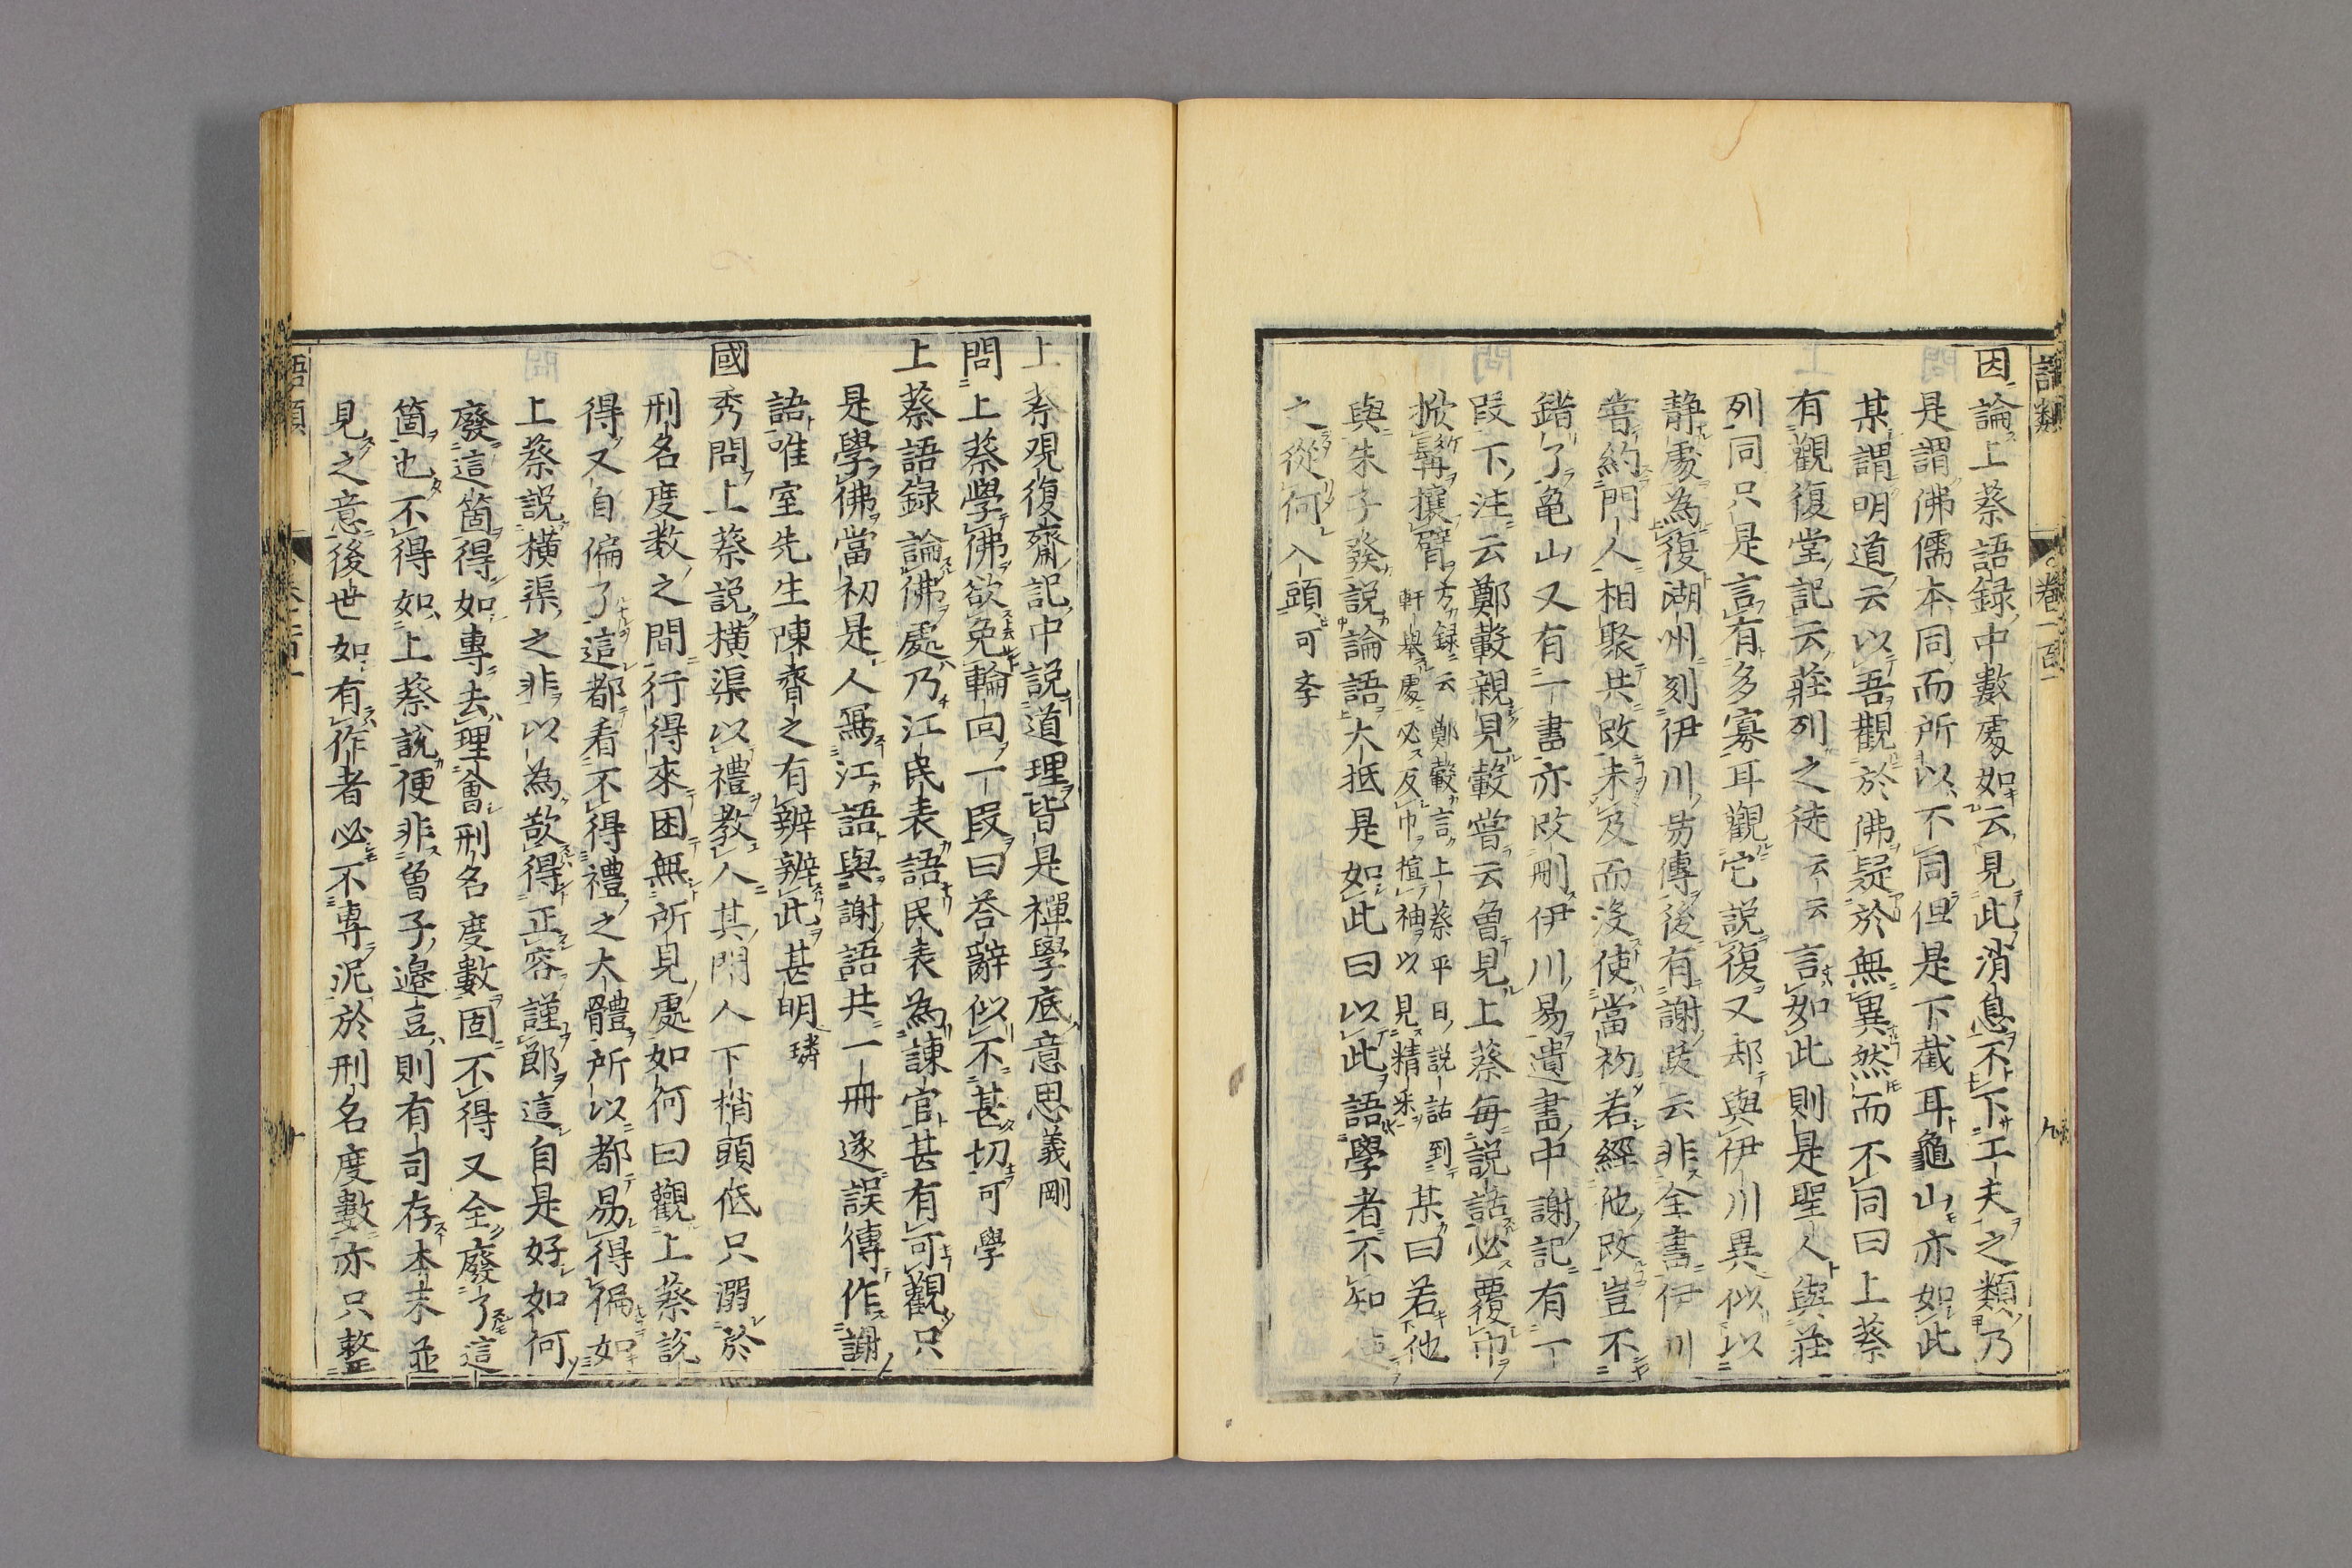 語類 卷一百一 九
因論上蔡語録中數處如云見此消息不下工夫之類乃
是謂佛儒本同而所以不同但是下截耳龜山亦如此
某謂明道云以吾觀於佛疑於無異然而不同曰上蔡
有觀復堂記云莊列之徒云云言如此則是聖人與莊
列同只是言有多寡耳觀它說復又却與伊川異似以
静處為復湖州刻伊川易傳後有謝跋云非全書伊川
嘗約門人相聚共改未及而没使當初若經他改豈不
錯了龜山又有一書亦改刪伊川易遺書中謝記有一
段下注云鄭轂親見轂嘗云曾見上蔡每説話必覆巾
掀髯攘臂
方録云鄭轂言上蔡平日説話到
軒舉處必反巾揎袖以見精采
某曰若他
與朱子發説論語大抵是如此曰以此語學者不知使
之從何入頭可李
上蔡觀復齋記中説道理皆是禪學底意思義剛
問上蔡學佛欲免輪回一段曰答辭似不甚切可學
上蔡語録論佛處乃江民表語民表為諫官甚有可觀只
是學佛當初是人寫江語與謝語共一冊遂誤傳作謝
語唯室先生陳齊之有辨辨此甚明璘
國秀問上蔡説橫渠以禮教人其門人下梢頭低只溺於
刑名度数之間行得來困無所見處如何曰觀上蔡説
得又自偏了這都看不得禮之大體所以都易得偏如
上蔡説橫渠之非以為欲得正容謹節這自是好如何
廢這箇得如專去理會刑名度數固不得又全廢了這
箇也不得如上蔡説便非曾子邉豆則有司存本末並
見之意後世如有作者必不專泥於刑名度數亦只整
語類